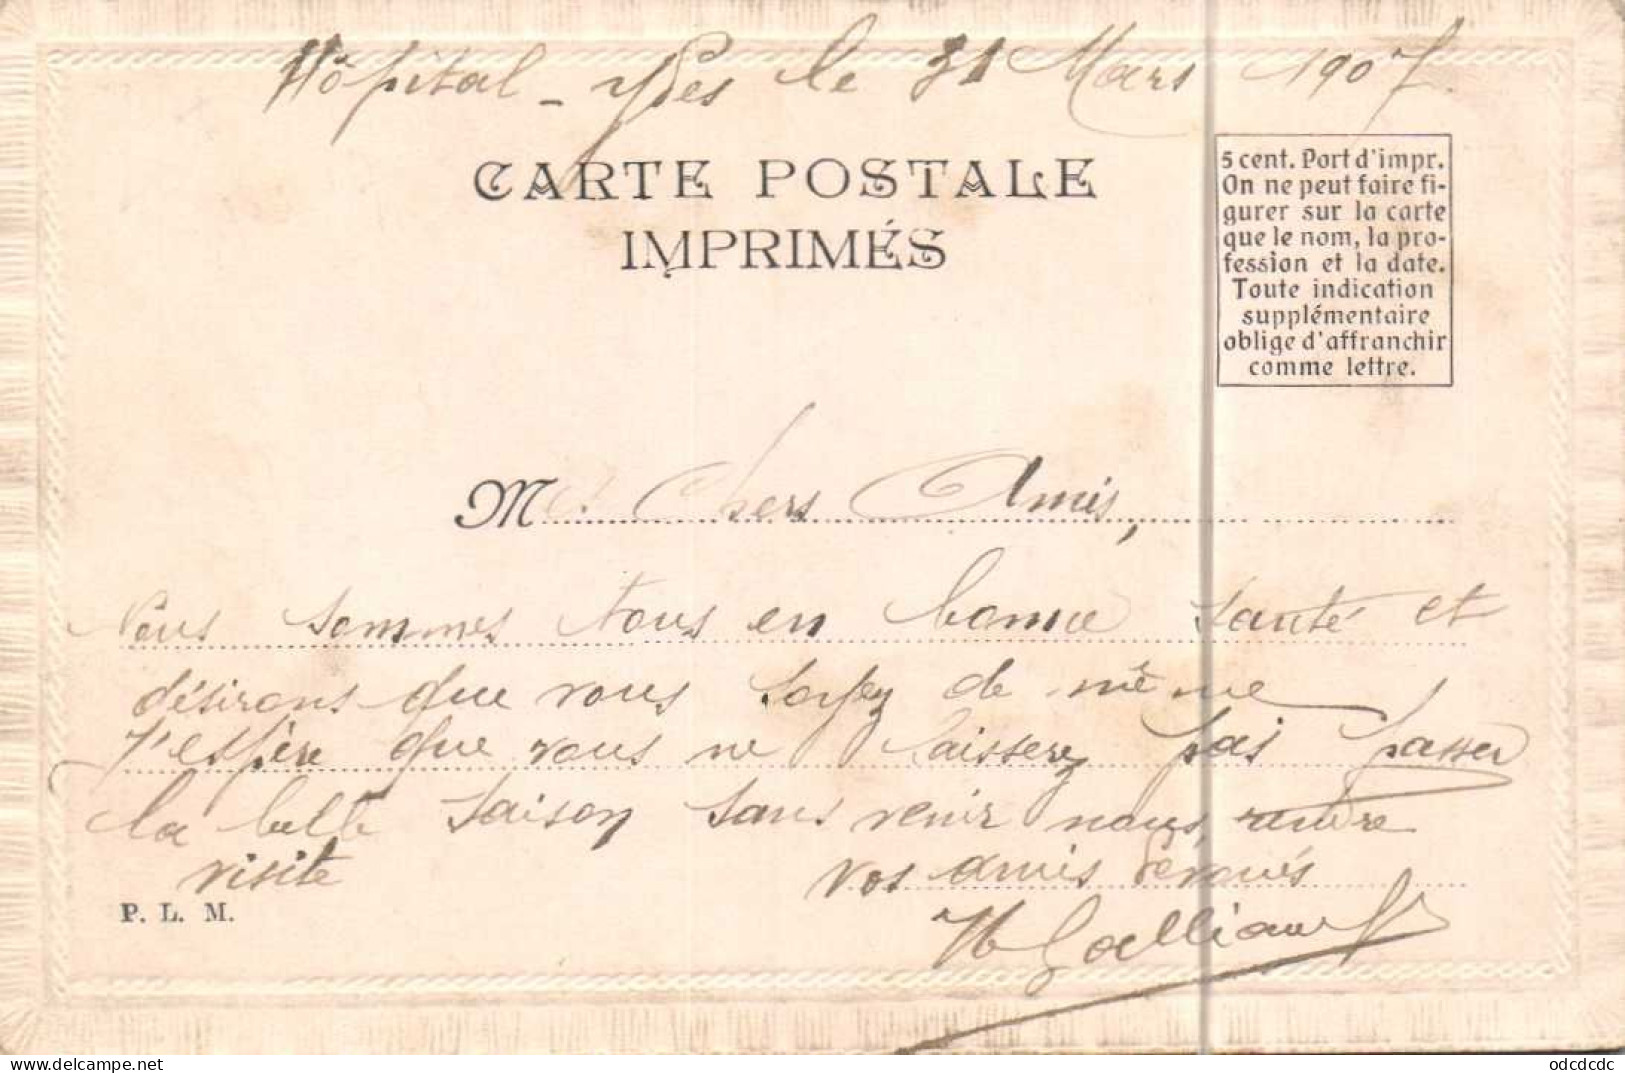 Hôpital - le 31 Mars 1907
CARTE POSTALE
IMPRIMÉS
5 cent. Port d'impr.
On ne peut faire fi-
gurer sur la carte
que le nom, la pro-
fession et la date.
Toute indication
supplémentaire
oblige d'affranchir
comme lettre.
Mes Chers Amis,
Nous sommes tous en bonne santé et
désirons que vous soyez de même
J'espère que vous ne laisserez pas passer
la belle saison sans venir nous rendre
visite
vos amis dévoués
P. L. M.
odcdcdc